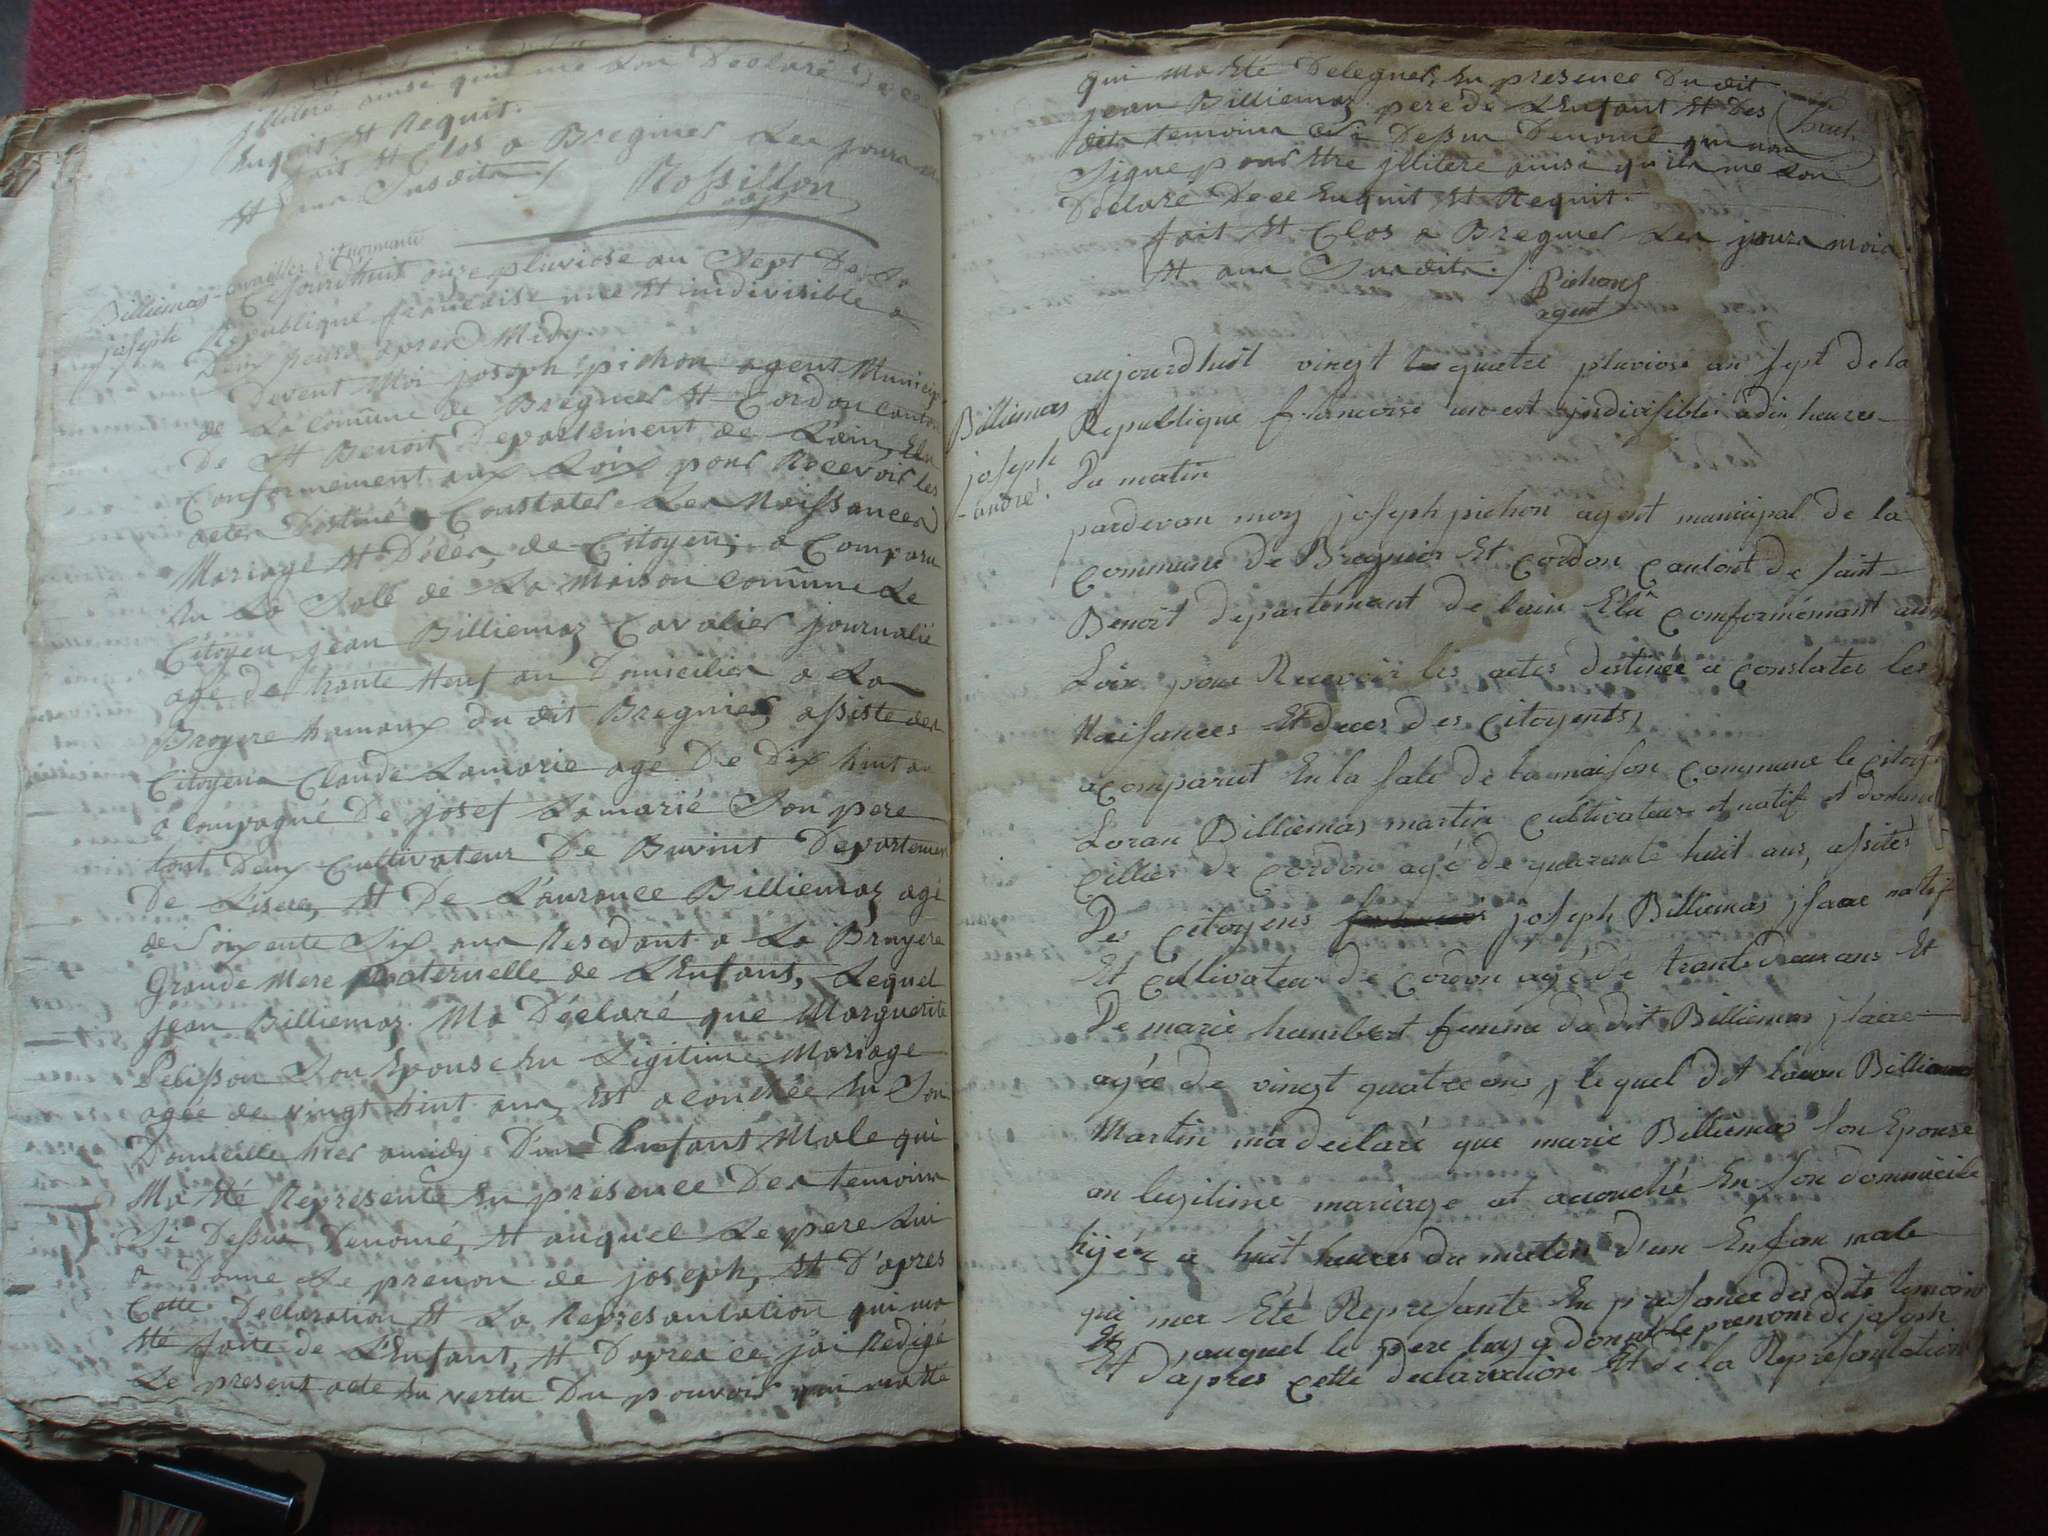 jlliteré ainsi quil me Lon Declaré De ce
Enquit Et Requit.
fait Et Clos a Bregnier Les jours
Et ans Susdits /. Rossillon
Billiemas cavallier dit normand
joseph
Cejourdhuit onze pluviose an Sept De La
Republique francaise une Et indivisible a
Deux heures apres Midy.
Devent Moi joseph pichon agent Municip
de La Comūne de Bregnier Et Cordon canton
De St Benoit Departement de Lain, Elu
Conformement aux Loix pour Recevoir les
actes Destiné a Constater Les Naissances
Mariage Et Décés, de Citoyen; a Comparu
En La Salle de La Maison comūne Le
Citoyen jean Billiemaz Cavalier journalié
agé de trante Neuf an Domicilier a La
Broyere hamaux du dit Bregnier, assiste des
Citoyens Claude Lamarie agé De dix huit an
a Compagné De josef Lamarié Son pere
tout Deux Cultivateur De Buvint Departemen
De Lisere, Et De Laurance Billiemaz agé
de Soixente Six ans Residant a La Bruyere
Grande Mere paternelle de L'Enfant, Lequel
jean Billiemaz Ma Déclaré que Marguerite
Pelisson Son Epouse En Légitime Mariage
agée de vingt huit ans, Est acouchée En Son
Domicille hier amidy D'un Enfant Male qui
Ma Eté Représenté En présence Des temoins
Si Dessus Denomé, Et auquel Le pere Lui
a Donné Le prenon de joseph, Et D'apres
Cette Déclaration Et La Représantation qui ma
Eté faite de L'Enfant, Et Dapres ce jai Redigé
Le present acte En vertu Du pouvoir qui matte
qui ma Eté Deleguer, En presence Du dit
jean Billiemaz pere de L'Enfant Et Des
dits temoins Ci Dessus Denomé qui non
Signe pour Etre jlliteré ainsi qu'ils me Lon
Déclaré De ce Enquit Et Requit.
fait Et Clos a Bregnier Les jours mois
Et ans Susdits /. Pichon
agent
aujourdhuit vingt quatre pluviose an sept de la
Billiemas
joseph
-andré.
Republique francoise un est jndivisible a dix heures
Du matin
pardevan moy joseph pichon agent municipal De la
Commune De Bregnier Et Cordon Cantont De saint
Benoit departemant de lain Elû Comformémant aux
Loix pour Recevoir les actes destinée a Constater les
Naisances Et deces des Citoyents,
a Comparut En la sale de la maison Commune le citoy
Loran Billiemas martin Cultivateur et natif et domi
cillier De Cordon agé de quarante huit ans, assités
Des Citoyens joseph Billiemas jsaac natif
Et Cultivateur De Cordon agé de trante deux ans Et
De marie humbert femme du dit Billiemas jsaac
agée de vingt quatre ans, le quel dit loran Billiemas
Martin ma déclaré que marie Billiemas son Epouse
an legitime mariage et acouché En son dommicile
hijér a huit heures du matin d'un Enfan male
qui mea Eté Représanté En présance des dits temoins
Et auquel le pere luy a donné le prenom de joseph
Et D'apres Cette declaration Et de la Représantation